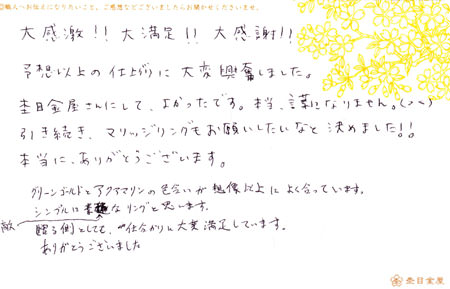 ◎職人へお伝えになりたいこと、ご感想などございましたらお聞かせくださいませ。
大感激!! 大満足!! 大感謝!!
予想以上の仕上がりに大変興奮しました。
杢目金屋さんにして、よかったです。本当、言葉になりません。(>\<)
引き続き、マリッジリングもお願いしたいなと決めました!!
本当に、ありがとうございます。
グリーンゴールドとアクアマリンの色合いが想像以上によく合っています。
シンプルに素敵なリングと思います。
贈る側としても、仕上がりに大変満足しています。
ありがとうございました
杢目金屋